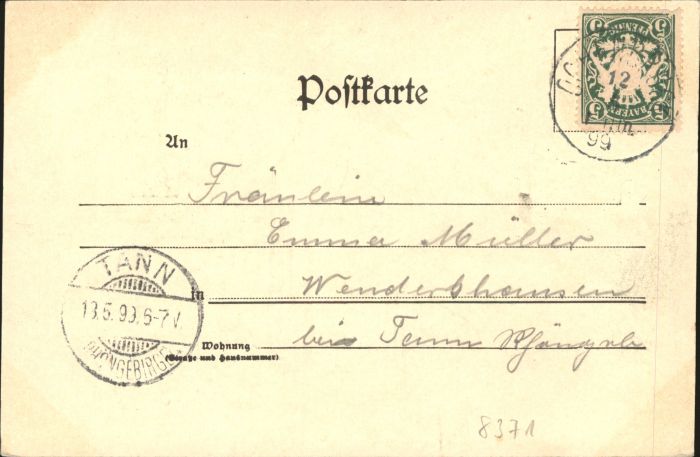 5 PFENNIG 5
BAYERN
12
99
Postkarte
An
Fräulein
Emma Müller
in Wendershausen
bei Tann
Wohnung
(Straße und Hausnummer)
TANN
13.5.99.6-7V.
(RHÖNGEBIRGE)
8371